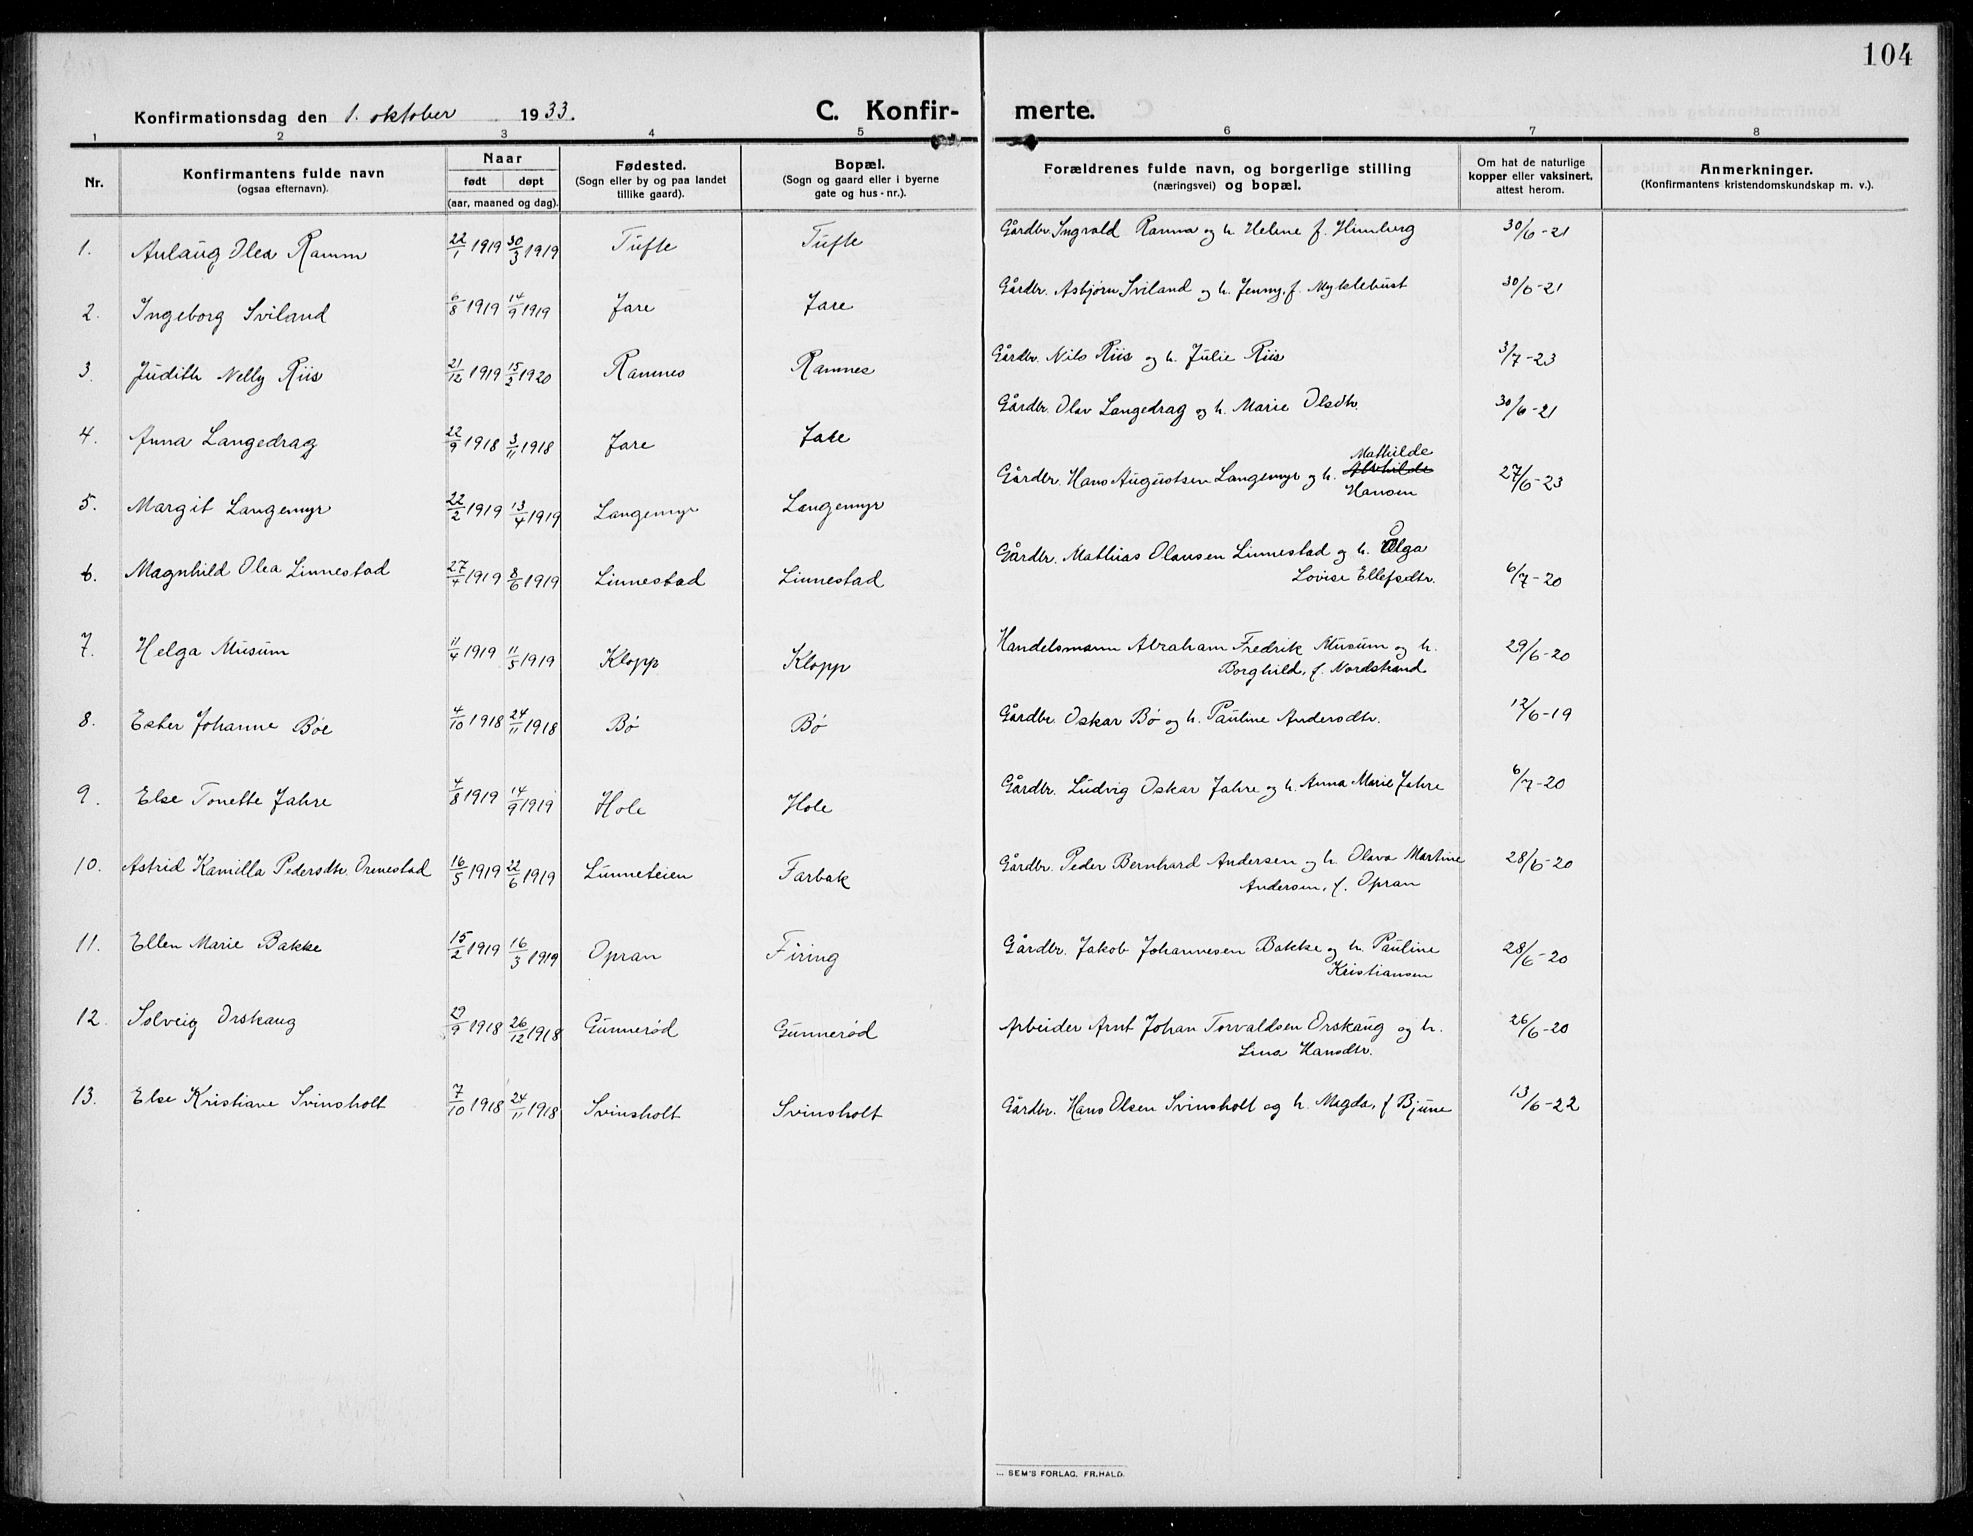 104
Konfirmationsdag den 1. oktober 1933.
C. Konfir- merte.
1 2 3 4 5 6 7 8
Nr.
Konfirmantens fulde navn
(ogsaa efternavn).
Naar
født døpt
(aar, maaned og dag).
Fødested.
(Sogn eller by og paa landet
tillike gaard).
Bopæl.
(Sogn og gaard eller i byerne
gate og hus-nr.).
Forældrenes fulde navn, og borgerlige stilling
(næringsvei) og bopæl.
Om hat de naturlige
kopper eller vaksinert,
attest herom.
Anmerkninger.
(Konfirmantens kristendomskundskap m. v.).
1. Aulaug Olea Ramm 22/1 1919 30/3 1919 Tufte Tufte Gårdbr. Ingvald Ramm og h. Helene f. Himberg 30/6-21
2. Ingeborg Sviland 6/8 1919 14/9 1919 Jare Jare Gårdbr. Asbjørn Sviland og h. Jenny, f. Myklebust 30/6-21
3. Judith Nelly Riis 21/12 1919 15/2 1920 Ramnes Ramnes Gårdbr. Nils Riis og h. Julie Riis 3/7-23
4. Anna Langedrag 22/9 1918 3/11 1918 Jare Jare Gårdbr. Olav Langedrag og h. Marie Olsdtr. 30/6-21
5. Margit Langemyr 22/2 1919 13/4 1919 Langemyr Langemyr Gårdbr. Hans Augustsen Langemyr og h. Mathilde
Hansen 27/6-23
6. Magnhild Olea Linnestad 27/4 1919 8/6 1919 Linnestad Linnestad Gårdbr. Mathias Olausen Linnestad og h. Olga
Lovise Ellefsdtr. 6/7-20
7. Helga Musum 11/4 1919 11/5 1919 Klopp Klopp Handelsmann Abraham Fredrik Musum og h.
Borghild, f. Nordstrand 29/6-20
8. Ester Johanne Bøe 4/10 1918 24/11 1918 Bø Bø Gårdbr. Oskar Bø og h. Pauline Andersdtr. 12/6-19
9. Else Tonette Jahre 4/8 1919 14/9 1919 Hole Hole Gårdbr. Ludvig Oskar Jahre og h. Anna Marie Jahre 6/7-20
10. Astrid Kamilla Pedersdtr. Ormestad 16/5 1919 22/6 1919 Lunneteien Farbak Gårdbr. Peder Bernhard Andersen og h. Olava Martine
Andersen, f. Opran 28/6-20
11. Ellen Marie Bakke 15/2 1919 16/3 1919 Opran Firing Gårdbr. Jakob Johannesen Bakke og h. Pauline
Kristiansen 28/6-20
12. Solveig Orskaug 29/9 1918 26/12 1918 Gunnerød Gunnerød Arbeider Arnt Johan Torvaldsen Orskaug og h.
Lina Hansdtr. 26/6-20
13. Else Kristiane Svinsholt 7/10 1918 24/11 1918 Svinsholt Svinsholt Gårdbr. Hans Olsen Svinsholt og h. Magda, f Bjune 13/6-22
SEM'S FORLAG, FR.HALD.